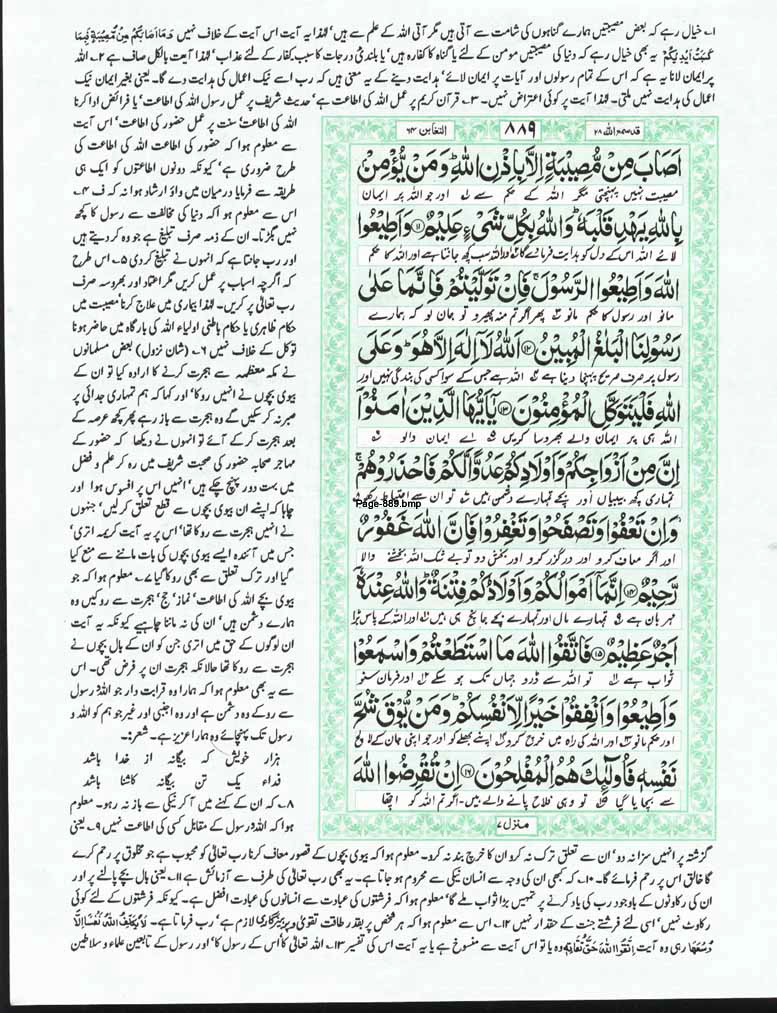 ۱۔ خیال رہے کہ بعض مصیبتیں ہمارے گناہوں کی شامت سے آتی ہیں مگر آتی اللہ کے علم سے ہیں' لہٰذا یہ آیت اس آیت کے خلاف نہیں وَمَآ اَصَابَكُمْ مِّنْ مُّصِيْبَةٍ فَبِمَا
كَسَبَتْ اَيْدِيْكُمْ یہ بھی خیال رہے کہ دنیا کی مصیبتیں مومن کے لئے یا گناہ کا کفارہ ہیں' یا بلندی درجات کا سبب کفار کے لئے عذاب' لہٰذا آیت بالکل صاف ہے ۲۔ اللہ
پر ایمان لانا یہ ہے کہ اس کے تمام رسولوں اور آیات پر ایمان لائے' ہدایت دینے کے یہ معنی ہیں کہ رب اسے نیک اعمال کی ہدایت دے گا۔ یعنی بغیر ایمان نیک
اعمال کی ہدایت نہیں ملتی۔ لہٰذا آیت پر کوئی اعتراض نہیں۔ ۳۔ قرآن کریم پر عمل اللہ کی اطاعت ہے' حدیث شریف پر عمل رسول اللہ کی اطاعت' یا فرائض ادا کرنا
اللہ کی اطاعت' سنت پر عمل حضور کی اطاعت' اس آیت
سے معلوم ہوا کہ حضور کی اطاعت اللہ کی اطاعت کی
طرح ضروری ہے' کیونکہ دونوں اطاعتوں کو ایک ہی
طریقہ سے فرمایا درمیان میں واؤ ارشاد ہوا نہ کہ ف ۴۔
اس سے معلوم ہوا کہ دنیا کی مخالفت سے رسول کا کچھ
نہیں بگڑتا۔ ان کے ذمہ صرف تبلیغ ہے جو وہ کر دیتے ہیں
اور رب جانتا ہے کہ انہوں نے تبلیغ کر دی ۵۔ اس طرح
کہ اگرچہ اسباب پر عمل کریں مگر اعتماد اور بھروسہ صرف
رب تعالیٰ پر کریں۔ لہٰذا بیماری میں علاج کرنا' مصیبت میں
حکام ظاہری یا حکام باطنی اولیاء اللہ کی بارگاہ میں حاضر ہونا
توکل کے خلاف نہیں ۶۔ (شان نزول) بعض مسلمانوں
نے مکہ معظمہ سے ہجرت کرنے کا ارادہ کیا تو ان کے
بیوی بچوں نے انہیں روکا' اور کہا کہ ہم تمہاری جدائی پر
صبر نہ کر سکیں گے وہ ہجرت سے باز رہے پھر کچھ عرصہ کے
بعد ہجرت کر کے آئے تو انہوں نے دیکھا کہ حضور کے
مہاجر صحابہ حضور کی صحبت شریف میں رہ کر علم و فضل
میں بہت دور پہنچ چکے ہیں' انہیں اس پر افسوس ہوا اور
چاہا کہ اپنے ان بیوی بچوں سے قطع تعلق کر لیں' جنہوں
نے انہیں ہجرت سے روکا تھا' اس پر یہ آیت کریمہ اتری'
جس میں آئندہ ایسے بیوی بچوں کی بات ماننے سے منع کیا
گیا اور ترک تعلق سے بھی روکا گیا ۷۔ معلوم ہوا کہ جو
بیوی بچے اللہ کی اطاعت' نماز' حج' ہجرت سے روکیں وہ
ہمارے دشمن ہیں' ان کی نہ ماننا چاہیے کیونکہ یہ آیت
ان لوگوں کے حق میں اتری جن کو ان کے بال بچوں نے
ہجرت سے روکا تھا حالانکہ ہجرت ان پر فرض تھی۔ اس
سے یہ بھی معلوم ہوا کہ ہمارا وہ قرابت دار جو اللہ رسول
سے روکے وہ دشمن ہے اور وہ اجنبی اور غیر جو ہم کو اللہ و
رسول تک پہنچائے وہ ہمارا عزیز ہے۔ شعر؛۔
ہزار خویش کہ بیگانہ از خدا باشد
فداء یک تن بیگانہ کاشنا باشد
۸۔ کہ ان کے کہنے میں آکر نیکی سے باز نہ رہو۔ معلوم
ہوا کہ اللہ و رسول کے مقابل کسی کی اطاعت نہیں ۹۔ یعنی
قد سمع الله ۲۸
۸۸۹
التغابن ۶۴
اَصَابَ مِنْ مُّصِيْبَةٍ اِلَّا بِاِذْنِ اللّٰهِ ؕ وَمَنْ يُّؤْمِنْۢ
مصیبت نہیں پہنچتی مگر اللہ کے حکم سے اور جو اللہ پر ایمان
بِاللّٰهِ يَهْدِ قَلْبَهٗ ؕ وَاللّٰهُ بِكُلِّ شَيْءٍ عَلِيْمٌ ۝۱۱ وَاَطِيْعُوا
لائے اللہ اس کے دل کو ہدایت فرما دے گا اور اللہ سب کچھ جانتا ہے اور اللہ کا حکم
اللّٰهَ وَاَطِيْعُوا الرَّسُوْلَ ۚ فَاِنْ تَوَلَّيْتُمْ فَاِنَّمَا عَلٰى
مانو اور رسول کا حکم مانو پھر اگر تم منہ پھیرو تو جان لو کہ ہمارے
رَسُوْلِنَا الْبَلٰغُ الْمُبِيْنُ ۝۱۲ اَللّٰهُ لَآ اِلٰهَ اِلَّا هُوَ ؕ وَعَلَى
رسول پر صرف صریح پہنچا دینا ہے اللہ ہے جس کے سوا کسی کی بندگی نہیں اور
اللّٰهِ فَلْيَتَوَكَّلِ الْمُؤْمِنُوْنَ ۝۱۳ يٰٓاَيُّهَا الَّذِيْنَ اٰمَنُوْٓا
اللہ ہی پر ایمان والے بھروسا کریں اے ایمان والو
اِنَّ مِنْ اَزْوَاجِكُمْ وَاَوْلَادِكُمْ عَدُوًّا لَّكُمْ فَاحْذَرُوْهُمْ ۚ
تمہاری کچھ بیبیاں اور بچے تمہارے دشمن ہیں تو ان سے احتیاط رکھو
Page-889.bmp
وَاِنْ تَعْفُوْا وَتَصْفَحُوْا وَتَغْفِرُوْا فَاِنَّ اللّٰهَ غَفُوْرٌ
اور اگر معاف کرو اور درگزر کرو اور بخش دو تو بے شک اللہ بخشنے والا
رَّحِيْمٌ ۝۱۴ اِنَّمَآ اَمْوَالُكُمْ وَاَوْلَادُكُمْ فِتْنَةٌ ؕ وَاللّٰهُ عِنْدَهٗٓ
مہربان ہے تمہارے مال اور تمہارے بچے جانچ ہی ہیں اور اللہ کے پاس بڑا
اَجْرٌ عَظِيْمٌ ۝۱۵ فَاتَّقُوا اللّٰهَ مَا اسْتَطَعْتُمْ وَاسْمَعُوْا
ثواب ہے تو اللہ سے ڈرو جہاں تک ہو سکے اور فرمان سنو
وَاَطِيْعُوْا وَاَنْفِقُوْا خَيْرًا لِّاَنْفُسِكُمْ ؕ وَمَنْ يُّوْقَ شُحَّ
اور حکم مانو اور اللہ کی راہ میں خرچ کرو اپنے بھلے کو اور جو اپنی جان کے لالچ
نَفْسِهٖ فَاُولٰٓئِكَ هُمُ الْمُفْلِحُوْنَ ۝۱۶ اِنْ تُقْرِضُوا اللّٰهَ
سے بچایا گیا تو وہی فلاح پانے والے ہیں۔ اگر تم اللہ کو اچھا
منزل ۷
گزشتہ پر انہیں سزا نہ دو' ان سے تعلق ترک نہ کرو ان کا خرچ بند نہ کرو۔ معلوم ہوا کہ بیوی بچوں کے قصور معاف کرنا رب تعالیٰ کو محبوب ہے جو مخلوق پر رحم کرے
گا خالق اس پر رحم فرمائے گا۔ ۱۰۔ کہ کبھی ان کی وجہ سے انسان نیکی سے محروم ہو جاتا ہے۔ یہ بھی رب تعالیٰ کی طرف سے آزمائش ہے ۱۱۔ یعنی بال بچے پالنے پر اور
ان کی رکاوٹوں کے باوجود رب کی یاد کرنے پر تمہیں بڑا ثواب ملے گا' معلوم ہوا کہ فرشتوں کی عبادت سے انسانوں کی عبادت افضل ہے۔ کیونکہ فرشتوں کے لئے کوئی
رکاوٹ نہیں' اسی لئے فرشتے جنت کے حقدار نہیں ۱۲۔ اس سے معلوم ہوا کہ ہر شخص پر بقدر طاقت تقویٰ و پرہیزگاری لازم ہے' رب فرماتا ہے۔ لَا يُكَلِّفُ اللّٰهُ نَفْسًا اِلَّا
وُسْعَهَا رہی وہ آیت اِتَّقُوا اللّٰهَ حَقَّ تُقٰتِهٖ وہ یا تو اس آیت سے منسوخ ہے یا یہ آیت اس کی تفسیر ۱۳۔ اللہ تعالیٰ کا' اس کے رسول کا' اور رسول کے تابعین علماء و سلاطین